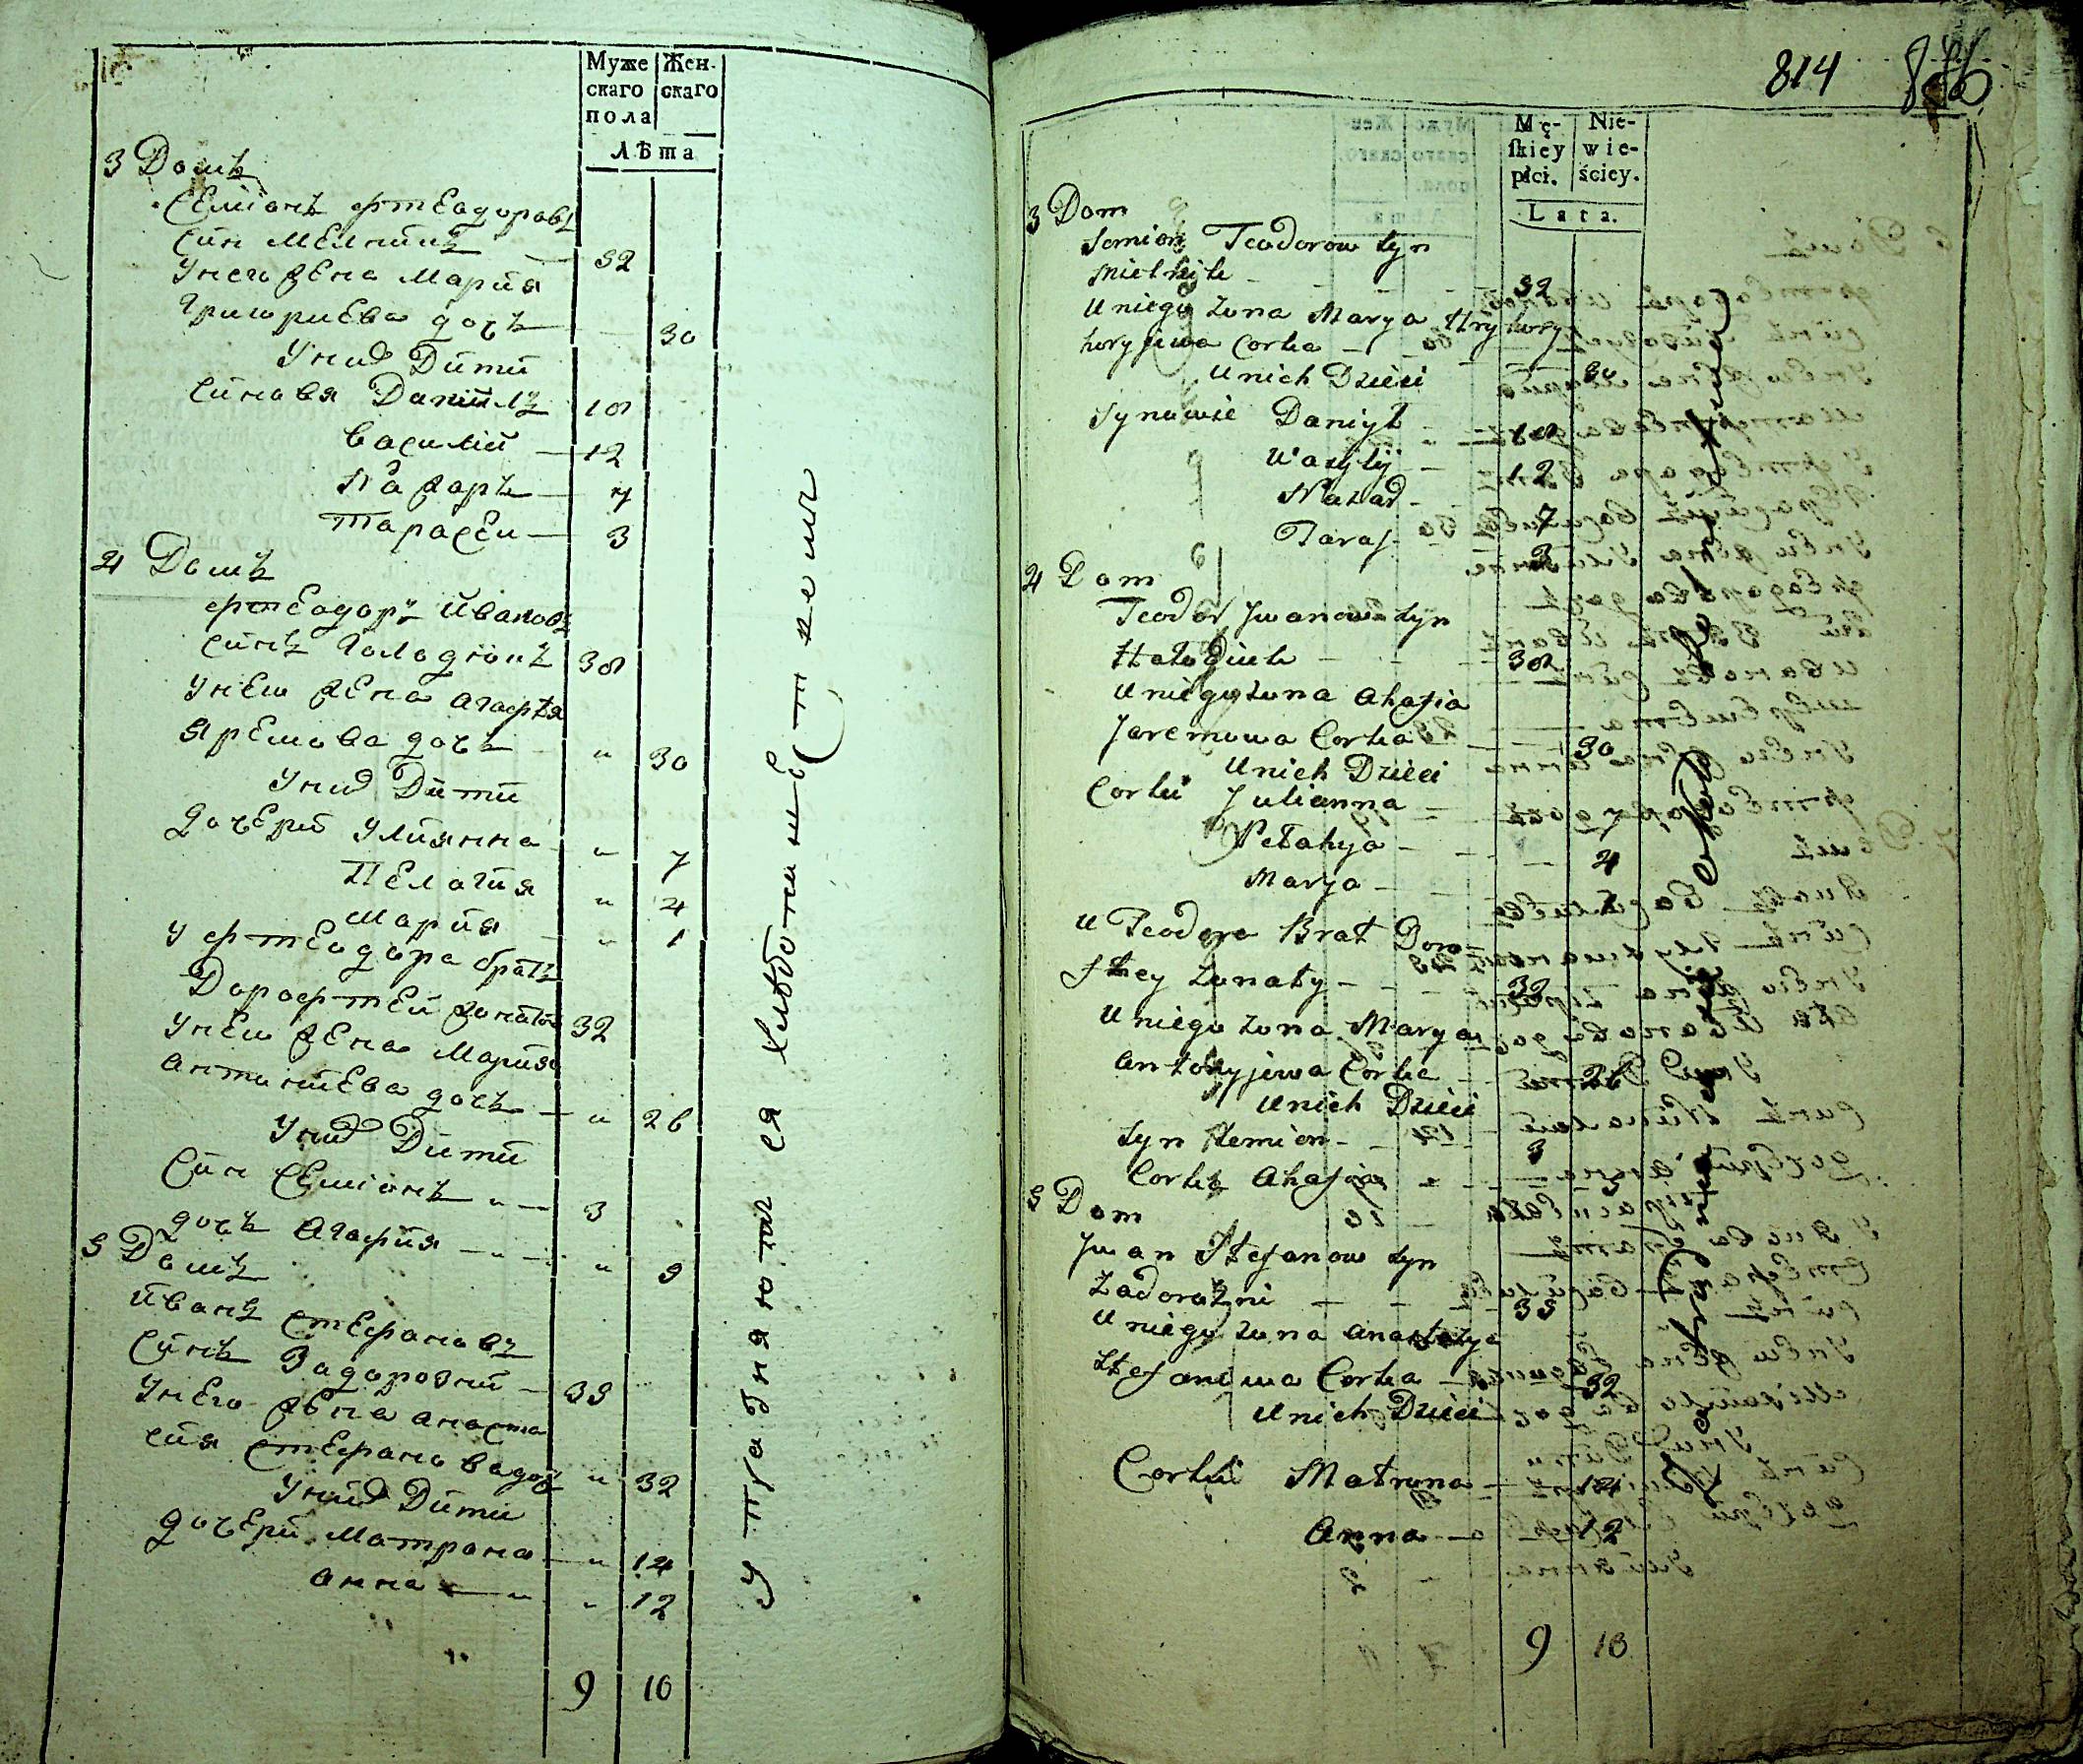 Муже Жен-
скаго скаго
пола
Лѣта
3 Домъ
Семіонъ Фтеодоровъ
Син Мелникъ 32
У него жена Мария
Григориева дочъ 30
У них Дити
Синовя Данийлъ 18
Василий 12
Назаръ 7
Тарасеи 3
4 Домъ
Фтеодоръ Ивановъ
Синъ Голодюкъ 38
У него жена Агафия
Яремова дочъ " 30
У них Дити
Дочери Улиянна " 7
Пелагия " 4
Мария " 1
У Фтеодора братъ
Дорофтей жонатый 32
У него жена Мария
Антониева дочъ " 26
У них Дити
Син Семіонъ " 3
дочъ Агафия " " 9
5 Домъ
Иванъ Стефановъ
Синъ Задорожний 39
У него жена Анаста
сия Стефанова дочъ " 32
У них Дити
Дочери Матрона " 14
Анна " " 12
9 10
Упражняются хлѣбопашеством
814
Mę- Nie-
skiey wie-
płci. ściey.
Lata.
3 Dom
Semion Teodorow syn
Mielnik 32
U niego zona Marya Hry
horyjewa Corka 30
U nich Dzieci
Synowie Daniył 18
Wasylij 12
Nazar 7
Taras 3
4 Dom
Teodor Jwanow syn
Hołodiuk 38
U niego zona Ahafia
Jaremowa Corka 30
U nich Dzieci
Corki Julianna 7
Petahya 4
Marya
U Teodora Brat Doro
ftey zonaty 32
U niego zona Marya
Antonyjewa Corka 26
U nich Dzieci
Syn Semion 3
Corka Ahafia 9
5 Dom
Jwan Stefanow syn
Zadorozni 39
U niego zona Anastazya
Stefanowa Corka 32
U nich Dzieci
Corki Matrona 14
Anna 12
9 10